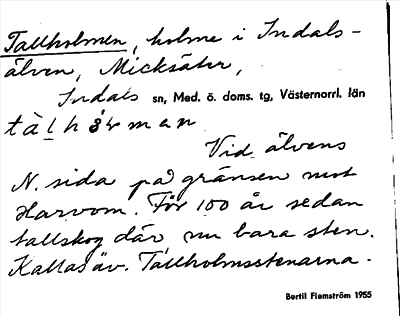 Tallholmen, holme i Indals-
älven, Micksäter,
Indals sn, Med. ö. doms. tg, Västernorrl. län
Vid älvens
N. sida på gränsen mot
Harvom. För 100 år sedan
tallskog där nu bara sten.
Kallas äv. Tallholmsstenarna.
Bertil Flemström 1955